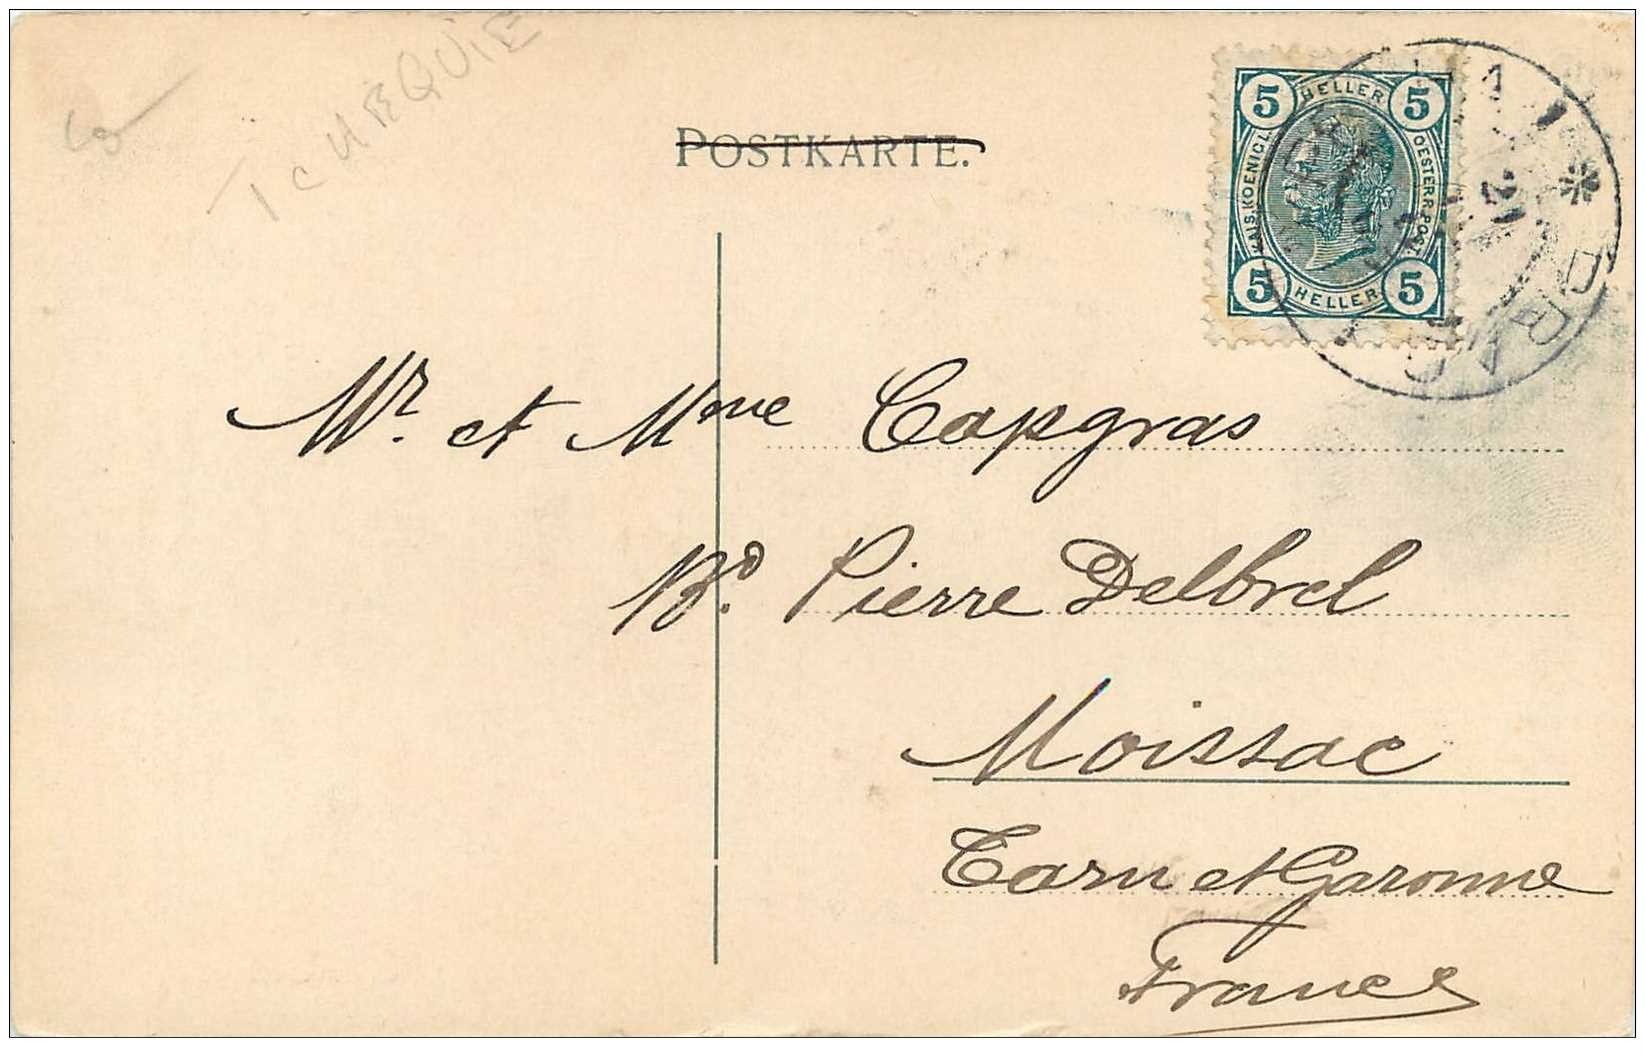 TCHÉQUIE
POSTKARTE.
5 HELLER 5
KAIS. KOENIGL. OESTERR. POST
5 HELLER 5
Mr. et Mme Capgras
Bd. Pierre Delbrel
Moissac
Tarn et Garonne
France